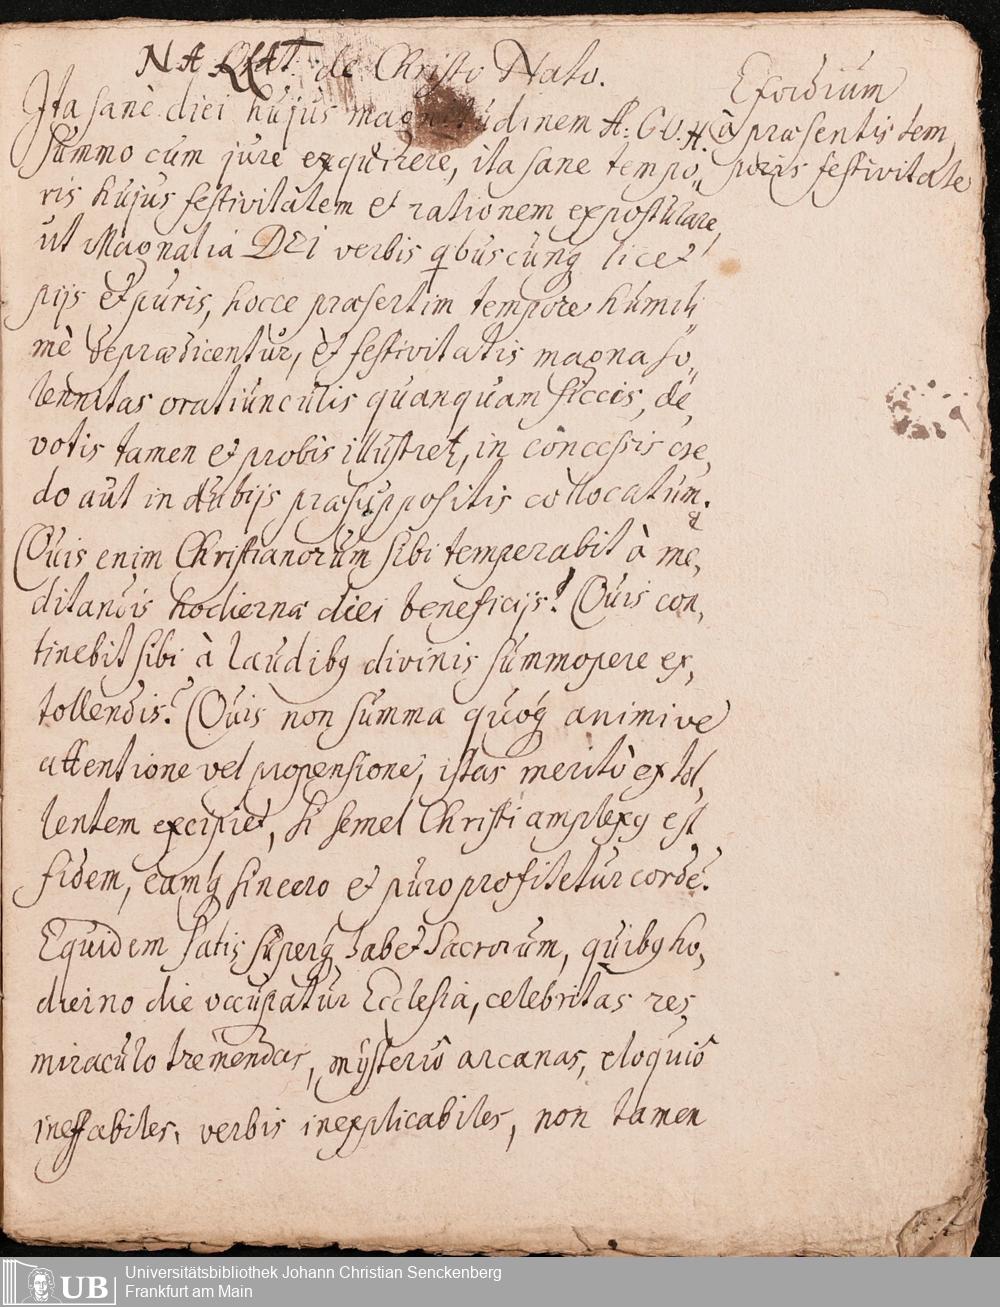 de Christo Nato.
Exordium
à præsentis tem,
poris festivitate
Ita sanè diei hujus magnitudinem A: C. V. H
summo cum jure exquirere, ita sane tempo,
ris hujus festivitatem et rationem expostulare,
ut Magnalia DEI verbis qbuscunq licet
pijs et puris, hocce præsertim tempore humili
mè deprædicentur, et festivitatis magna so,
lennitas oratiunculis quanquam siccis, de,
votis tamen et probis illustret, in concessis cre,
do aut in dubijs præsuppositis collocatum.
Quis enim Christianorum sibi temperabit à me,
ditandis hodierna diei beneficijs? Quis con,
tinebit sibi à laudibq divinis summopere ex,
tollendis? Quis non summa quoq animi ve
attentione vel propensione, istas meritò extol,
lentem excipiet, si semel Christi amplexq est
fidem, eamq sincero et puro profitetur corde?
Equidem satis superq habet Sacrorum, quibq ho,
dierno die occupatur Ecclesia, celebritas res
miraculo tremendas, mÿsterio arcanas, eloquio
ineffabiles, verbis inexplicabiles, non tamen
UB
Universitätsbibliothek Johann Christian Senckenberg
Frankfurt am Main